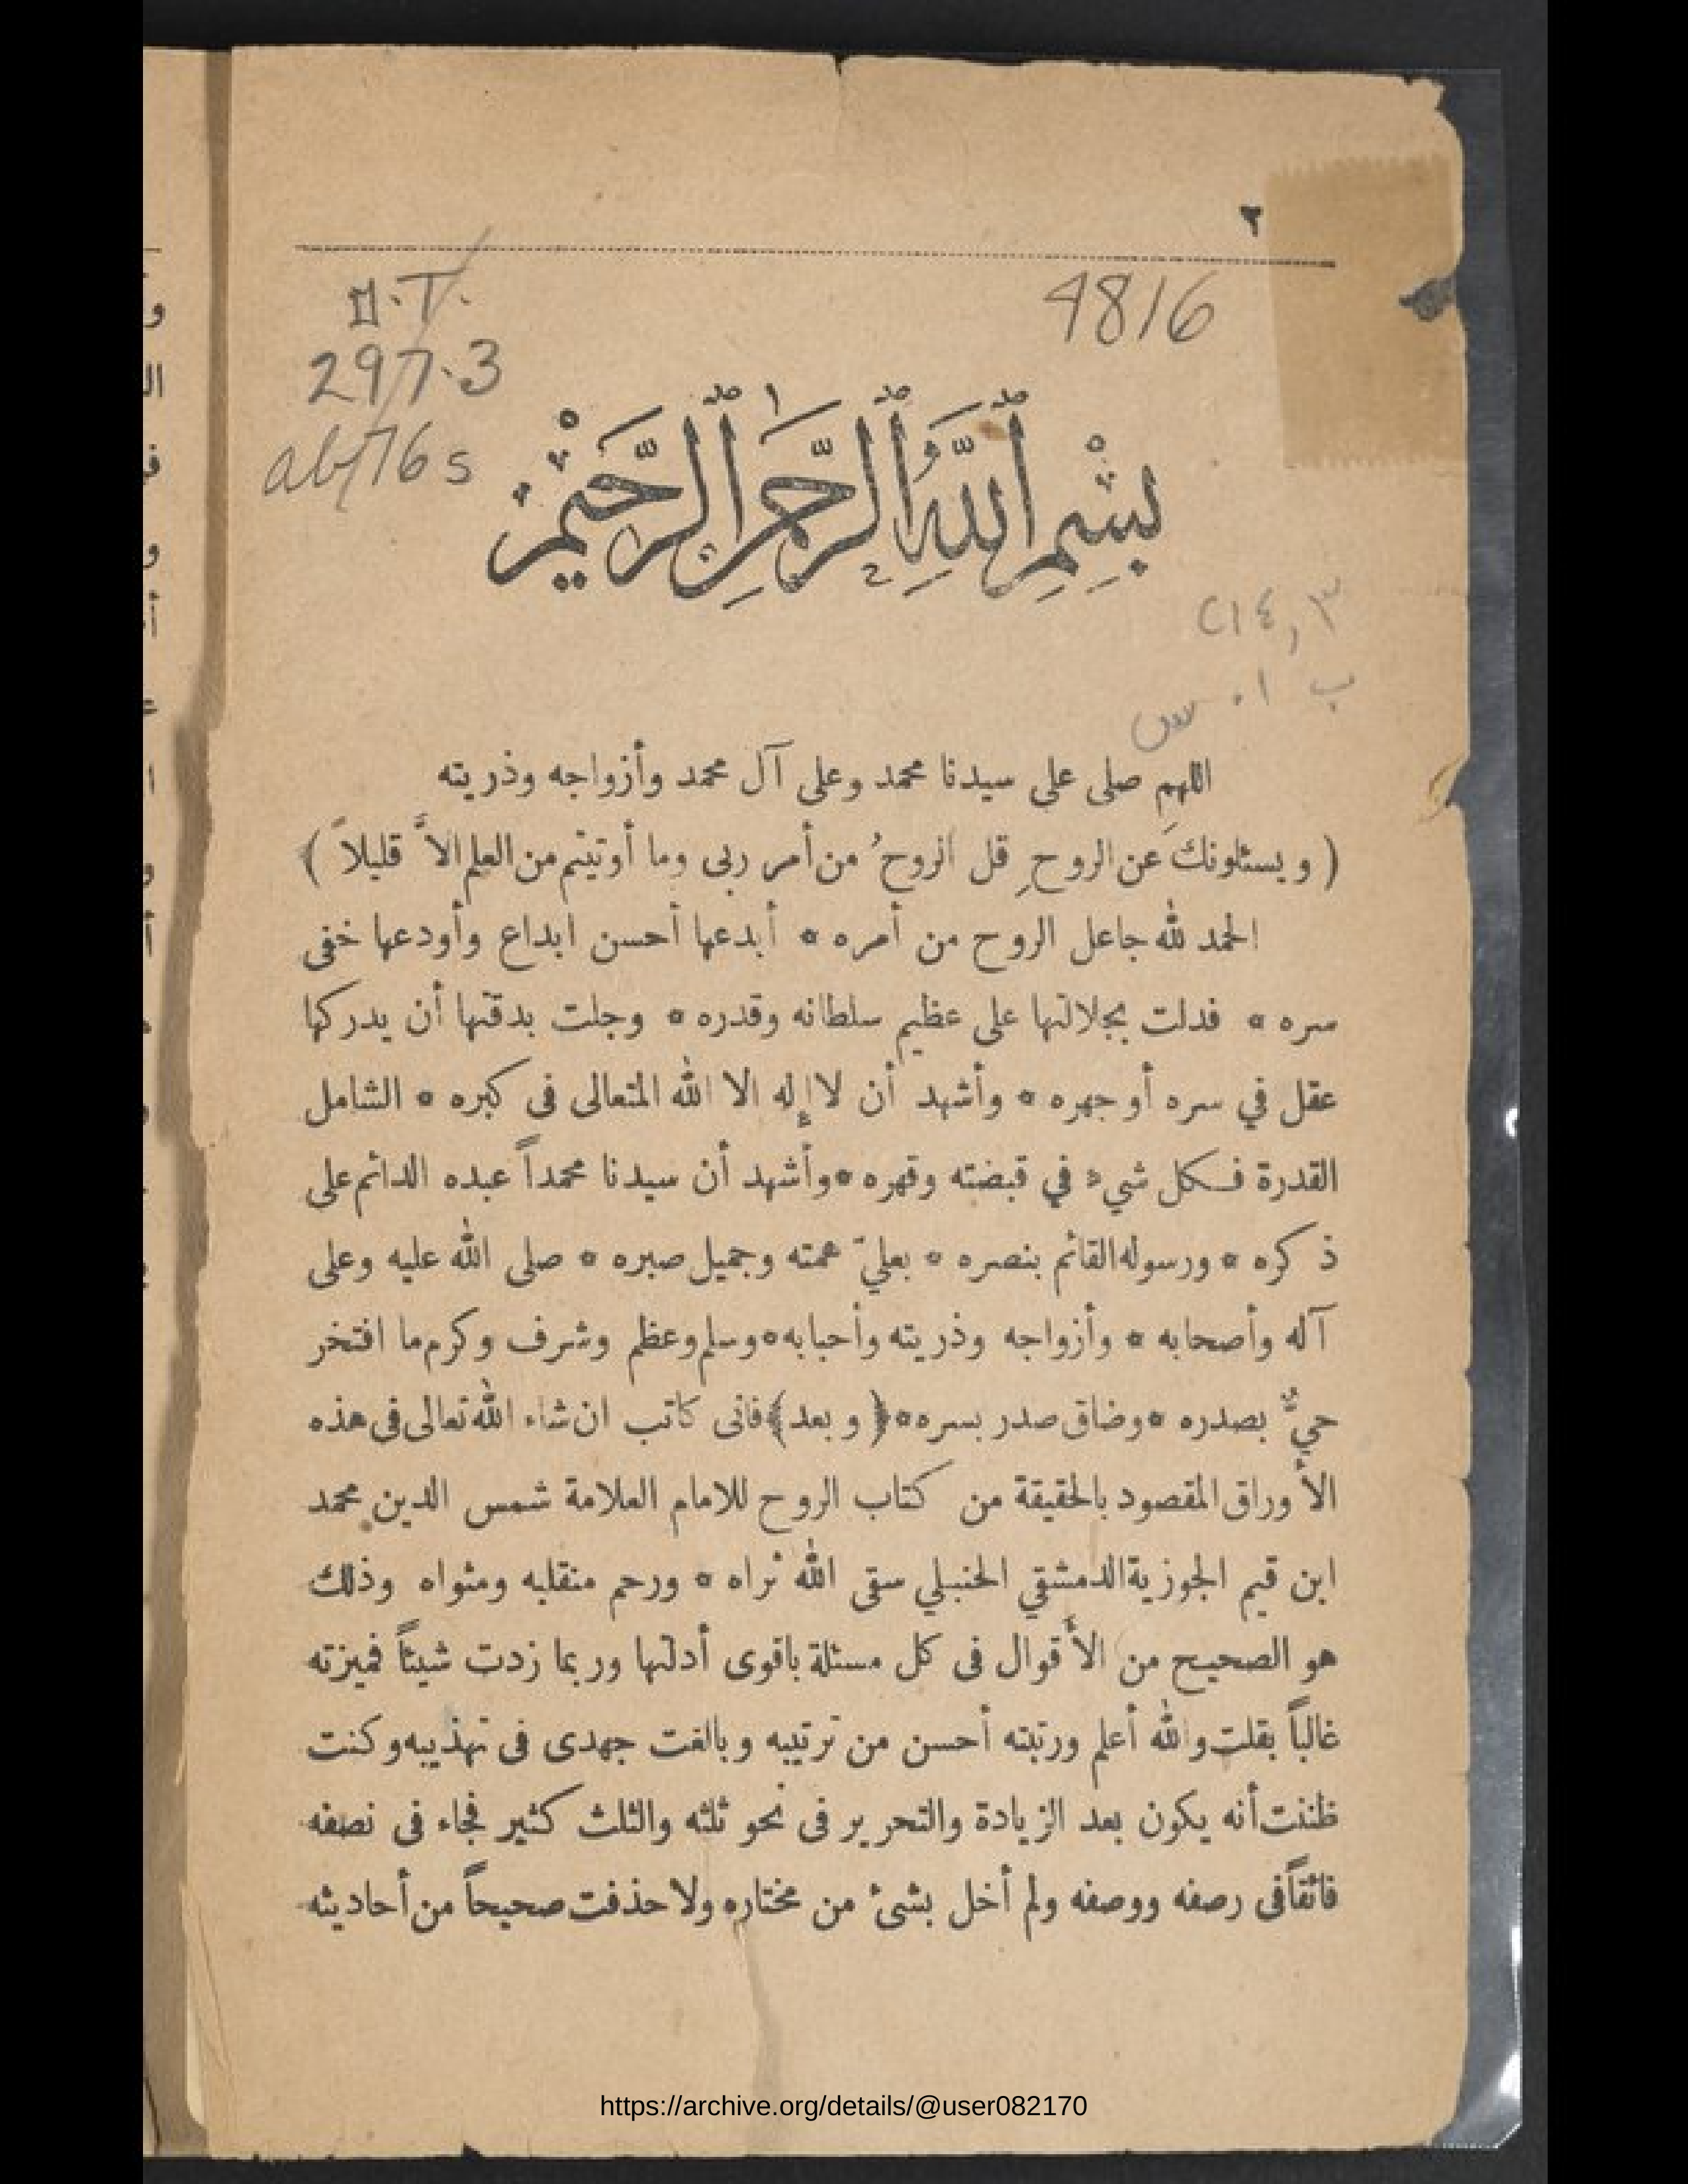 ٢
O.T.
297.3
ab76s
4816
بِسْمِ ٱللَّهِ ٱلرَّحْمَٰنِ ٱلرَّحِيمِ
٢١٤,٣
ب ١٠ س
اللهم صلى على سيدنا محمد وعلى آل محمد وأزواجه وذريته
( ويسئلونكَ عن الروحِ قل الروحُ من أمر ربى وما أوتيتم من العلم الاَّ قليلاً )
الحمد لله جاعل الروح من أمره ٭ أبدعها أحسن ابداع وأودعها خفى
سره ٭ فدلت بجلالتها على عظيم سلطانه وقدره ٭ وجلت بدقتها أن يدركها
عقل في سره أو جهره ٭ وأشهد أن لا إله الا الله المتعالى فى كبره ٭ الشامل
القدرة فكل شيء في قبضته وقهره ٭ وأشهد أن سيدنا محمداً عبده الدائم على
ذكره ٭ ورسوله القائم بنصره ٭ بعليّ همته وجميل صبره ٭ صلى الله عليه وعلى
آله وأصحابه ٭ وأزواجه وذريته وأحبابه ٭ وسلم وعظم وشرف وكرم ما افتخر
حيٌّ بصدره ٭ وضاق صدر بسره ٭ ﴿ وبعد ﴾ فانى كاتب ان شاء الله تعالى فى هذه
الأوراق المقصود بالحقيقة من كتاب الروح للامام العلامة شمس الدين محمد
ابن قيم الجوزية الدمشقي الحنبلي سقى الله ثراه ٭ ورحم منقلبه ومثواه وذلك
هو الصحيح من الأقوال فى كل مسئلة باقوى أدلتها وربما زدت شيئاً فميزته
غالباً بقلت والله أعلم ورتبته أحسن من ترتيبه وبالغت جهدى فى تهذيبه وكنت
ظننت أنه يكون بعد الزيادة والتحرير فى نحو ثلثه والثلث كثير فجاء فى نصفه
فائقاً فى رصفه ووصفه ولم أخل بشئ من مختاره ولا حذفت صحيحاً من أحاديثه
https://archive.org/details/@user082170